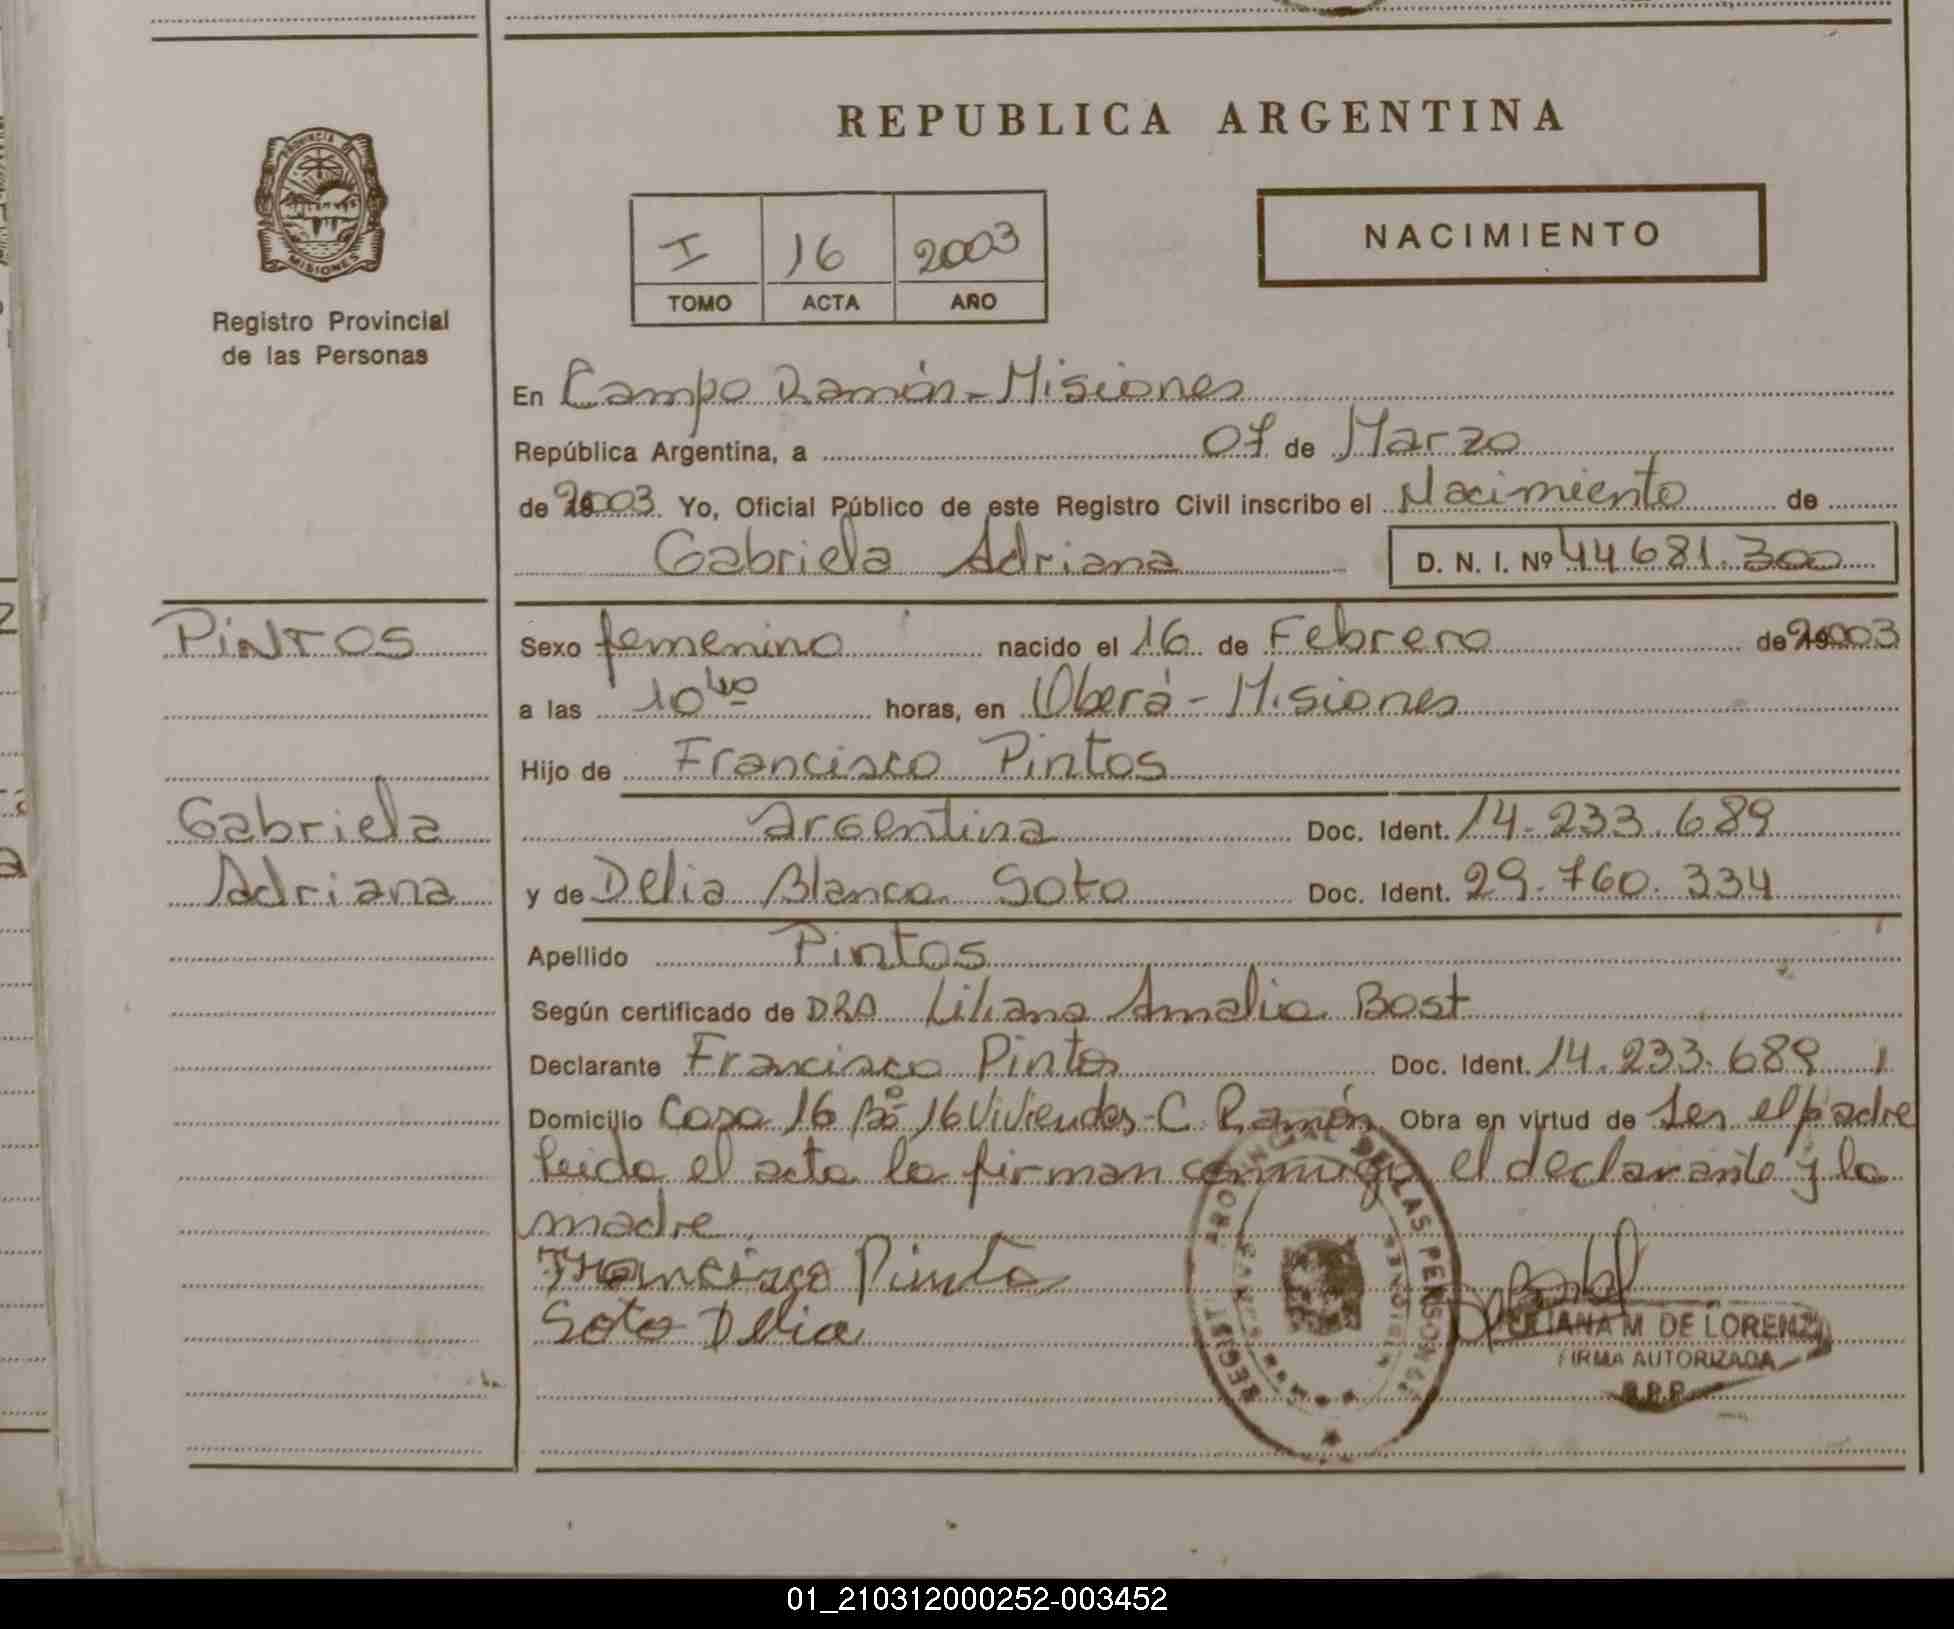 REPUBLICA ARGENTINA
PROVINCIA DE
MISIONES
Registro Provincial
de las Personas
I 16 2003
TOMO ACTA AÑO
NACIMIENTO
En Campo Ramón - Misiones
República Argentina, a 07 de Marzo
de 2003. Yo, Oficial Público de este Registro Civil inscribo el Nacimiento de
Gabriela Adriana D. N. I. Nº 44681.300
PINTOS
Gabriela
Adriana
Sexo femenino nacido el 16 de Febrero de 2003
a las 10 40 horas, en Oberá - Misiones
Hijo de Francisco Pintos
argentina Doc. Ident. 14.233.689
y de Delia Blanca Soto Doc. Ident. 29.760.334
Apellido Pintos
Según certificado de DRA Liliana Amalia Bost
Declarante Francisco Pintos Doc. Ident. 14.233.689
Domicilio Casa 16 Bº 16 Viviendas - C. Ramón Obra en virtud de ser el padre
leida el acta la firman conmigo el declarante y la
madre
Francisco Pinto
Soto Delia
PROVINCIAL DE LAS PERSONAS
MISIONES
DE LORENZI
FIRMA AUTORIZADA
R.P.P.
01_210312000252-003452